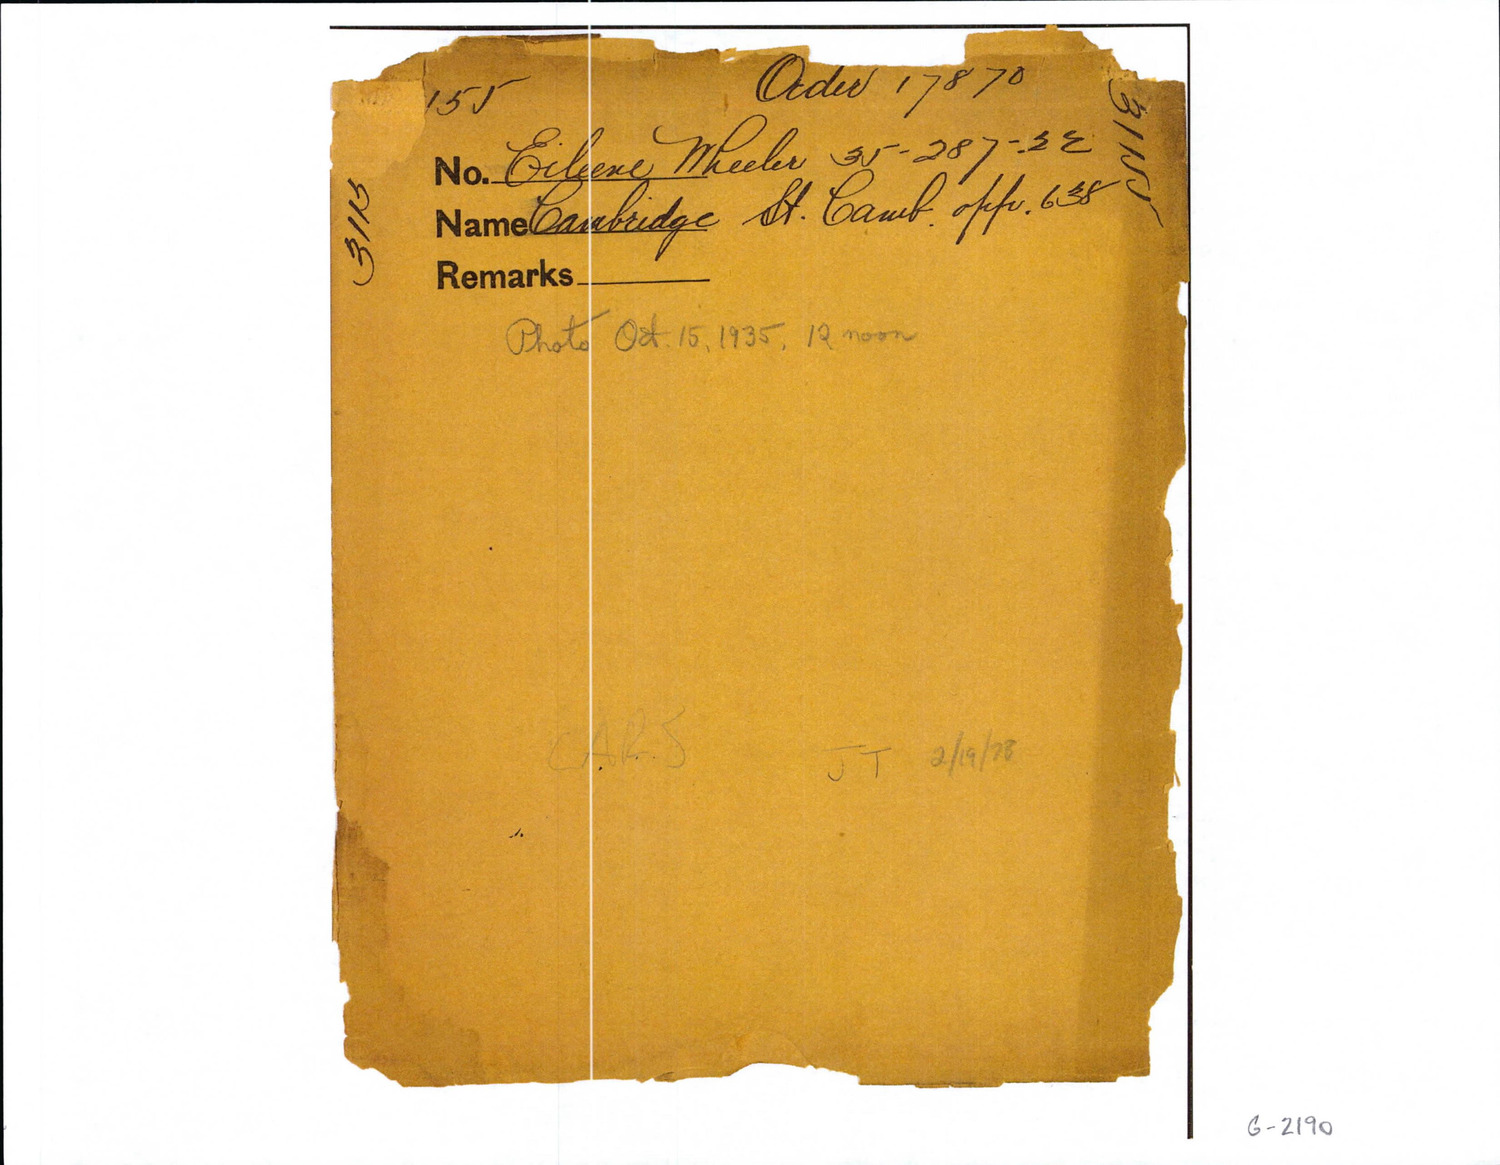 155
Order 17870
No. Eileene Wheeler 35-287-32
Name Cambridge St. Camb. opp. 638
Remarks
3115
31155
Photo Oct. 15, 1935, 12 noon
CARS
JT 2/19/78
G-2190